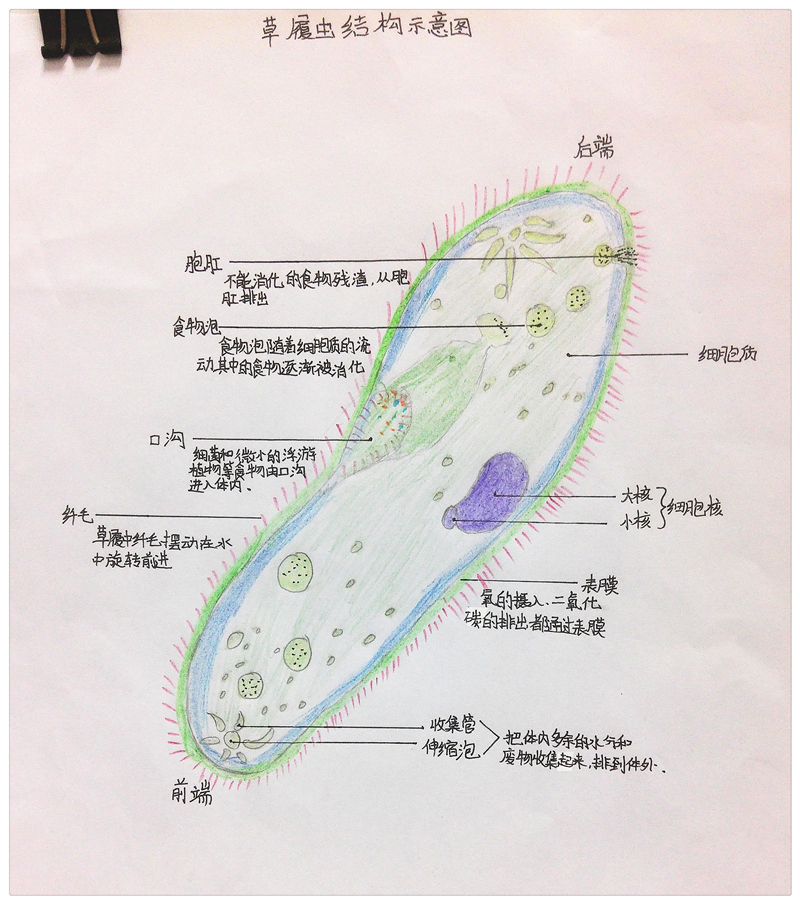 草履虫结构示意图
后端
胞肛
不能消化的食物残渣,从胞
肛排出
食物泡
食物泡随着细胞质的流
动其中的食物逐渐被消化
细胞质
口沟
细菌和微小的浮游
植物等食物由口沟
进入体内.
大核
小核
细胞核
纤毛
草履虫纤毛摆动在水
中旋转前进
表膜
氧的摄入、二氧化
碳的排出都通过表膜
收集管
伸缩泡
把体内多余的水分和
废物收集起来,排到体外.
前端